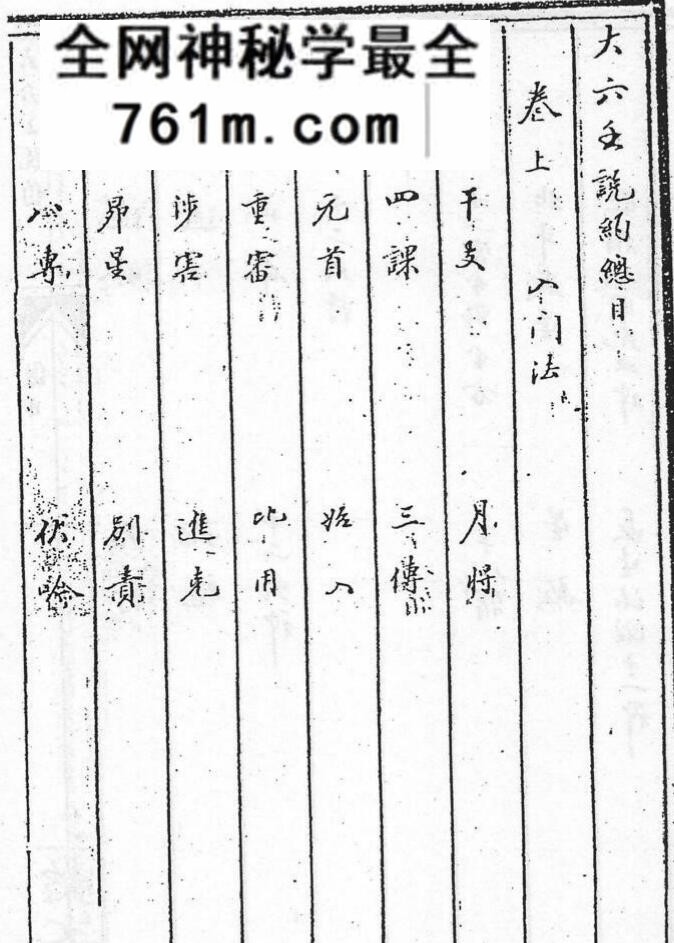 全网神秘学最全
761m.com
大六壬說約總目
卷上 入门法
干支 月将
四課 三傳
元首 始入
重審 比用
涉害 進克
昴星 別責
八專 伏吟